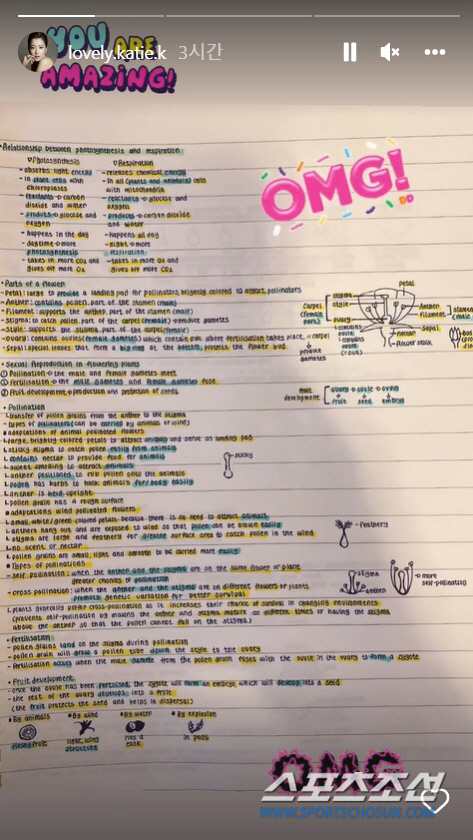 YOU ARE
AMAZING!
lovely.katie.k 3시간
OMG!
• Relationship between photosynthesis and respiration
♡Photosynthesis ♡Respiration
- absorbs light energy - releases chemical energy
- in plant cells with - in all (plants and animals) cells
chloroplasts with mitochondria
- reactants → carbon - reactants → glucose and
dioxide and water oxygen
- products → glucose and - products → carbon dioxide
oxygen and water
- happens in the day - happens all day
- daytime → more - night → more
photosynthesis respiration
- takes in more CO2 and - takes in more O2 and
gives off more O2 gives off more CO2
• Parts of a flower
- Petal: large to provide a landing pad for pollinators, brightly colored to attract pollinators
- Anther: contains pollen, part of the stamen (male)
- Filament: supports the anther, part of the stamen (male)
- Stigma: to catch pollen, part of the carpel (female) → produce gametes
- Style: supports the stigma, part of the carpel (female)
- Ovary: contains ovules (female gametes) which contain ova where fertilisation takes place,
- Sepal: special leaves that form a big ring at the bottom, protects the flower bud.
Petal
stigma
style
Carpel
(female
parts)
ovary
Anther
Filament
stamen
sepal
nectar
flower stalk
produce
gametes
• Sexual Reproduction in flowering plants
① Pollination → the male and female gametes meet
② Fertilisation → the male gametes and female gametes fuse
③ Fruit development → production and protection of seeds
fruit
development
ovary → ovule → ovum
fruit seed embryo
• Pollination
- transfer of pollen grains from the anther to the stigma
- types of pollinators (can be carried by animals or wind)
■ adaptations of animal pollinated flowers
large, brightly colored petals to attract animals and serve as landing pad
sticky stigma to catch pollen easily from animals
contains nectar to provide food for animals
sweet smelling to attract animals
anther positioned to rub pollen onto the animals
pollen has barbs to hook animals fur/body easily
anther is held upright
pollen grain has a rough surface
sticky
■ adaptations wind pollinated flowers
small, white/green colored petals because there is no need to attract animals
anthers hang out and are exposed to wind so that pollen can be blown easily
stigma are large and feathery for greater surface area to catch pollen in the wind
no scent or nectar
pollen grains are small, light and smooth to be carried more easily
feathery
■ Types of pollinations
- self pollination: when the anther and the stigma are on the same flower or plant
greater chances of pollination
- cross pollination: when the anther and the stigma are on different flowers or plants
promote genetic variation for better survival
Plants generally prefer cross-pollination as it increases their chance of survival in changing environments
(prevents self-pollination by making the anther and stigma mature at different times or having the stigma
above the anther so that the pollen cannot fall on the stigma.)
stigma
anther
→ more
self-pollination
• Fertilisation
- pollen grains land on the stigma during pollination
- pollen grain will grow a pollen tube down the style to the ovary
- fertilisation occurs when the male gamete from the pollen grain fuses with the ovule in the ovary to form a zygote
• Fruit development
- once the ovule has been fertilised, the zygote will form an embryo, which will develop into a seed
- the rest of the ovary develops into a fruit
(the fruit protects the seed and helps in dispersal)
• By animals • By wind • By water • By explosion
fleshy fruit light, wing has a in pods
structure husk
OMG
스포츠조선
WWW.SPORTSCHOSUN.COM